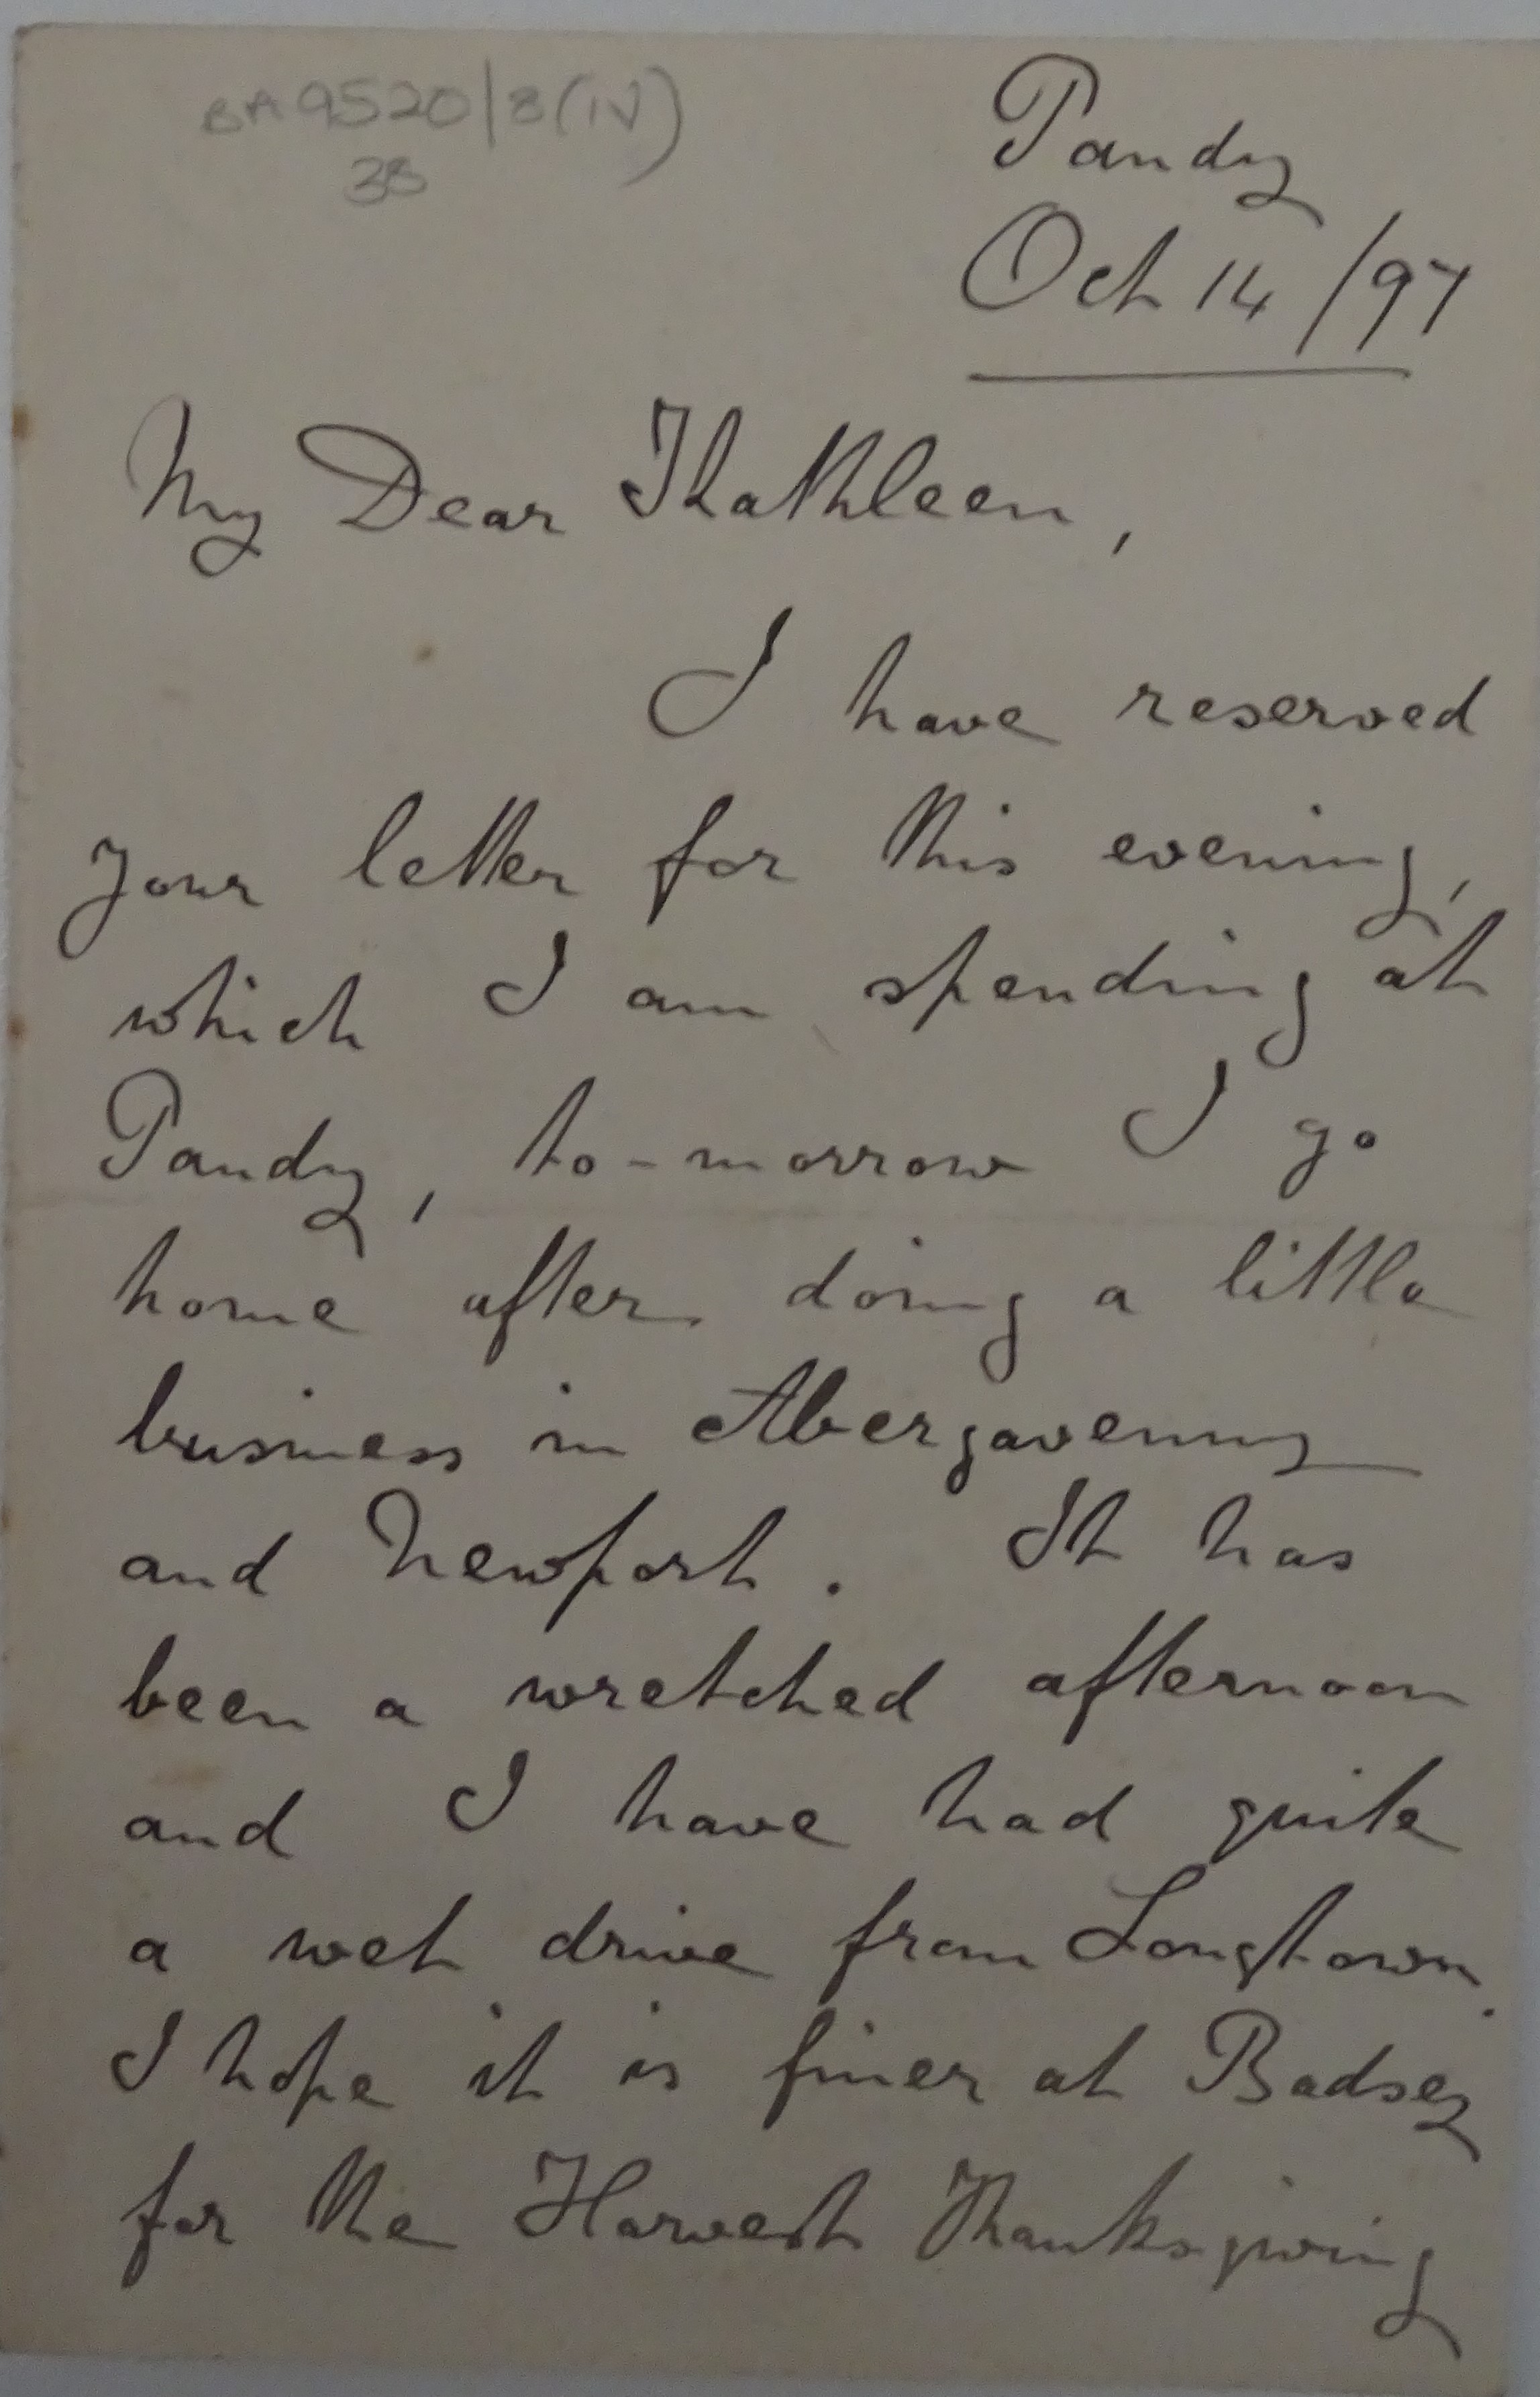 BA9520/8(IV)
38
Pandy
Oct 14/97
My Dear Kathleen,
I have reserved
your letter for this evening,
which I am spending at
Pandy, to-morrow I go
home after doing a little
business in Abergavenny
and Newport. It has
been a wretched afternoon
and I have had quite
a wet drive from Longtown.
I hope it is finer at Badsey
for the Harvest Thanksgiving